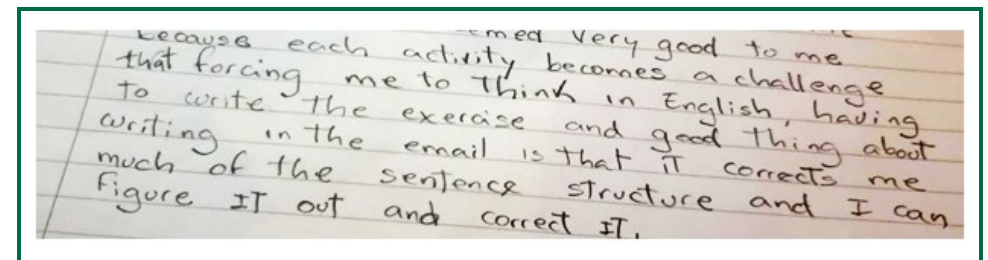 very good to me
because each activity becomes a challenge
that forcing me to think in English, having
to write the exercise and good thing about
writing in the email is that it corrects me
much of the sentence structure and I can
figure IT out and correct IT.